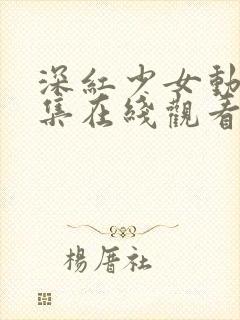 深紅少女動
集在綫觀看
楊厝社